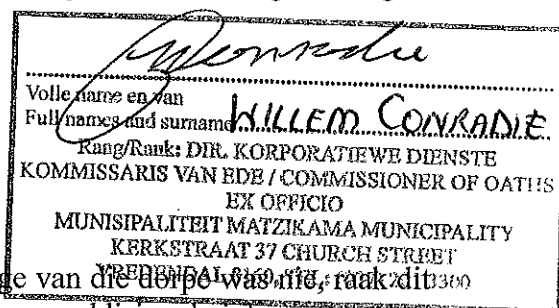 Conradie
Volle name en van
Full names and surname WILLEM CONRADIE
Rang/Rank: DIR. KORPORATIEWE DIENSTE
KOMMISSARIS VAN EDE / COMMISSIONER OF OATHS
EX OFFICIO
MUNISIPALITEIT MATZIKAMA MUNICIPALITY
KERKSTRAAT 37 CHURCH STREET
VREDENDAL 8160, 3300
ge van die dorpe was nie, raak dit